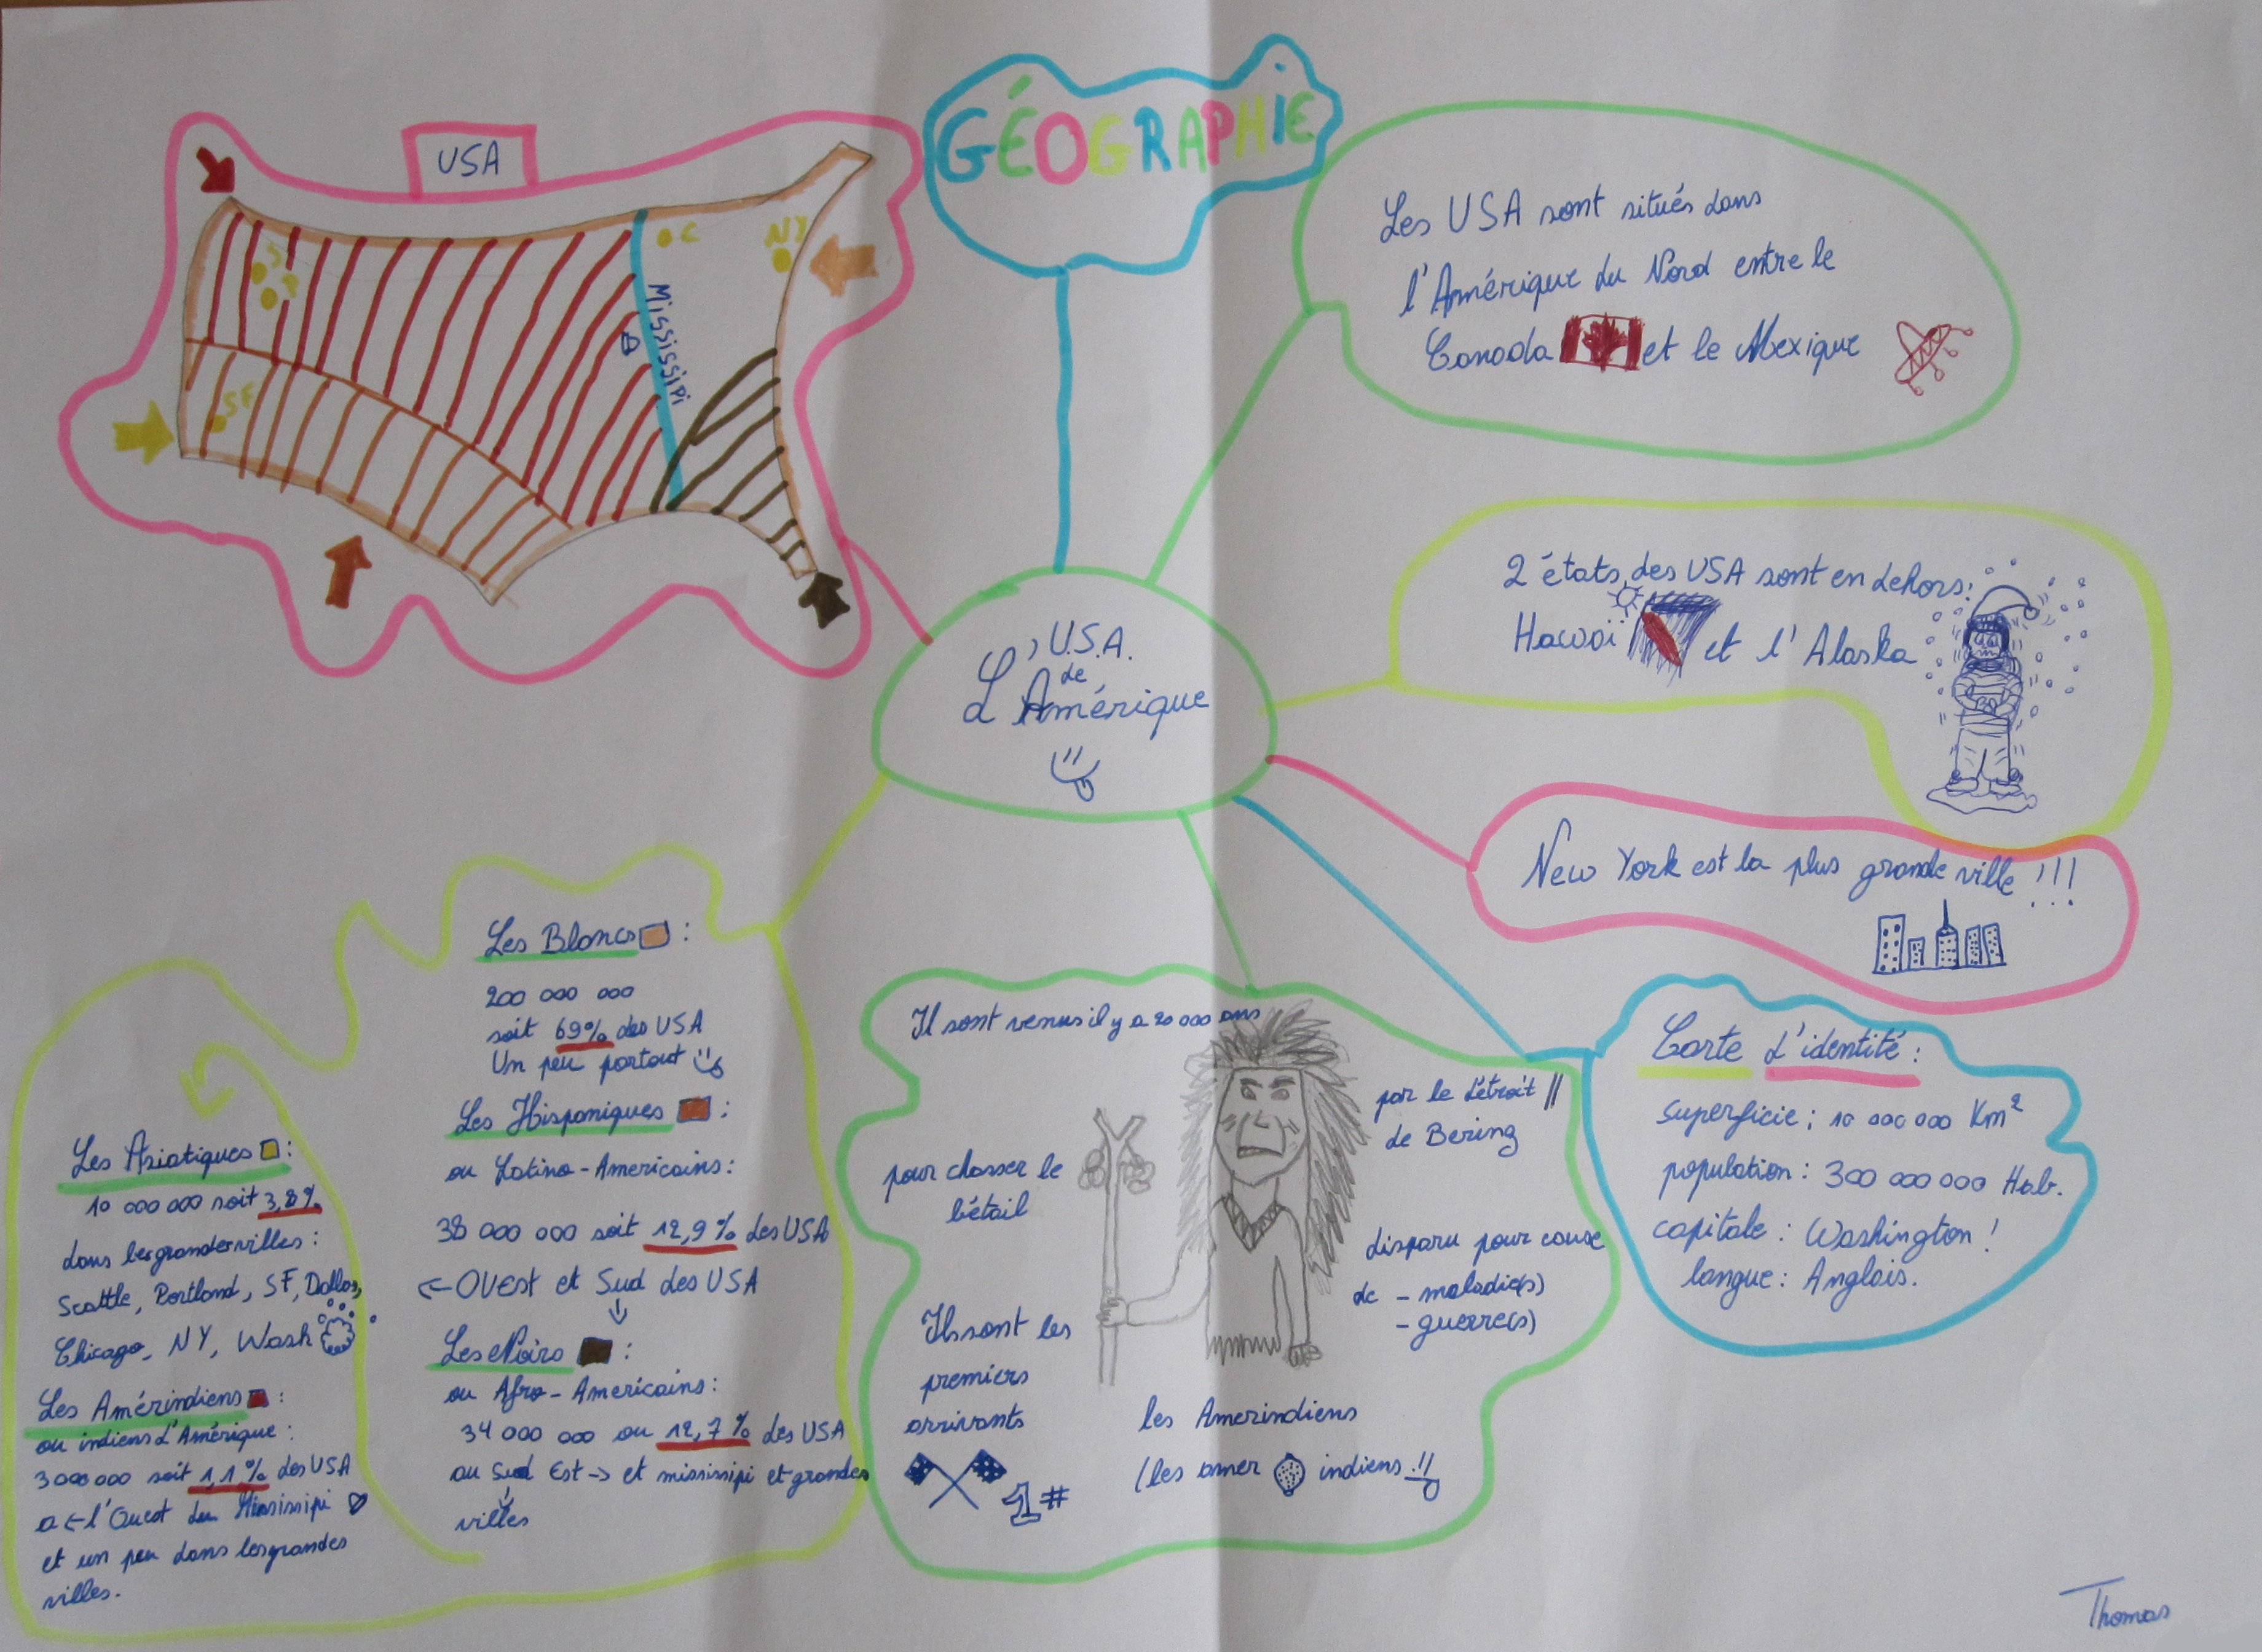 GÉOGRAPHIE
USA
S
P
SF
C
NY
Mississipi
Les USA sont situés dans
l'Amérique du Nord entre le
Canada et le Mexique
2 états des USA sont en dehors:
Hawaï et l'Alaska
L'U.S.A.
de
L'Amérique
New York est la plus grande ville !!!...
Carte d'identité :
superficie : 10 000 000 Km²
population : 300 000 000 Hab.
capitale : Washington !
langue : Anglais.
Il sont venus il y a 20 000 ans
par le détroit
de Bering
pour chasser le
bétail
disparu pour cause
de - maladie(s)
- guerre(s)
Ils sont les
premiers
arrivants
1#
les Amerindiens
(les amer indiens !!
Les Blancs :
200 000 000
soit 69% des USA
Un peu partout
Les Hispaniques :
ou Latino-Americains :
38 000 000 soit 12,9 % des USA
← OUest et Sud des USA
Les Noirs :
ou Afro-Americains :
34 000 000 ou 12,7 % des USA
au Sud Est → et mississipi et grandes
villes
Les Asiatiques :
10 000 000 soit 3,8%
dans les grandes villes :
Seattle, Portland, SF, Dallas,
Chicago, NY, Wash
Les Amérindiens :
ou indiens d'Amérique :
3 000 000 soit 1,1% des USA
a ← l'Ouest du Mississipi
et un peu dans les grandes
villes.
Thomas